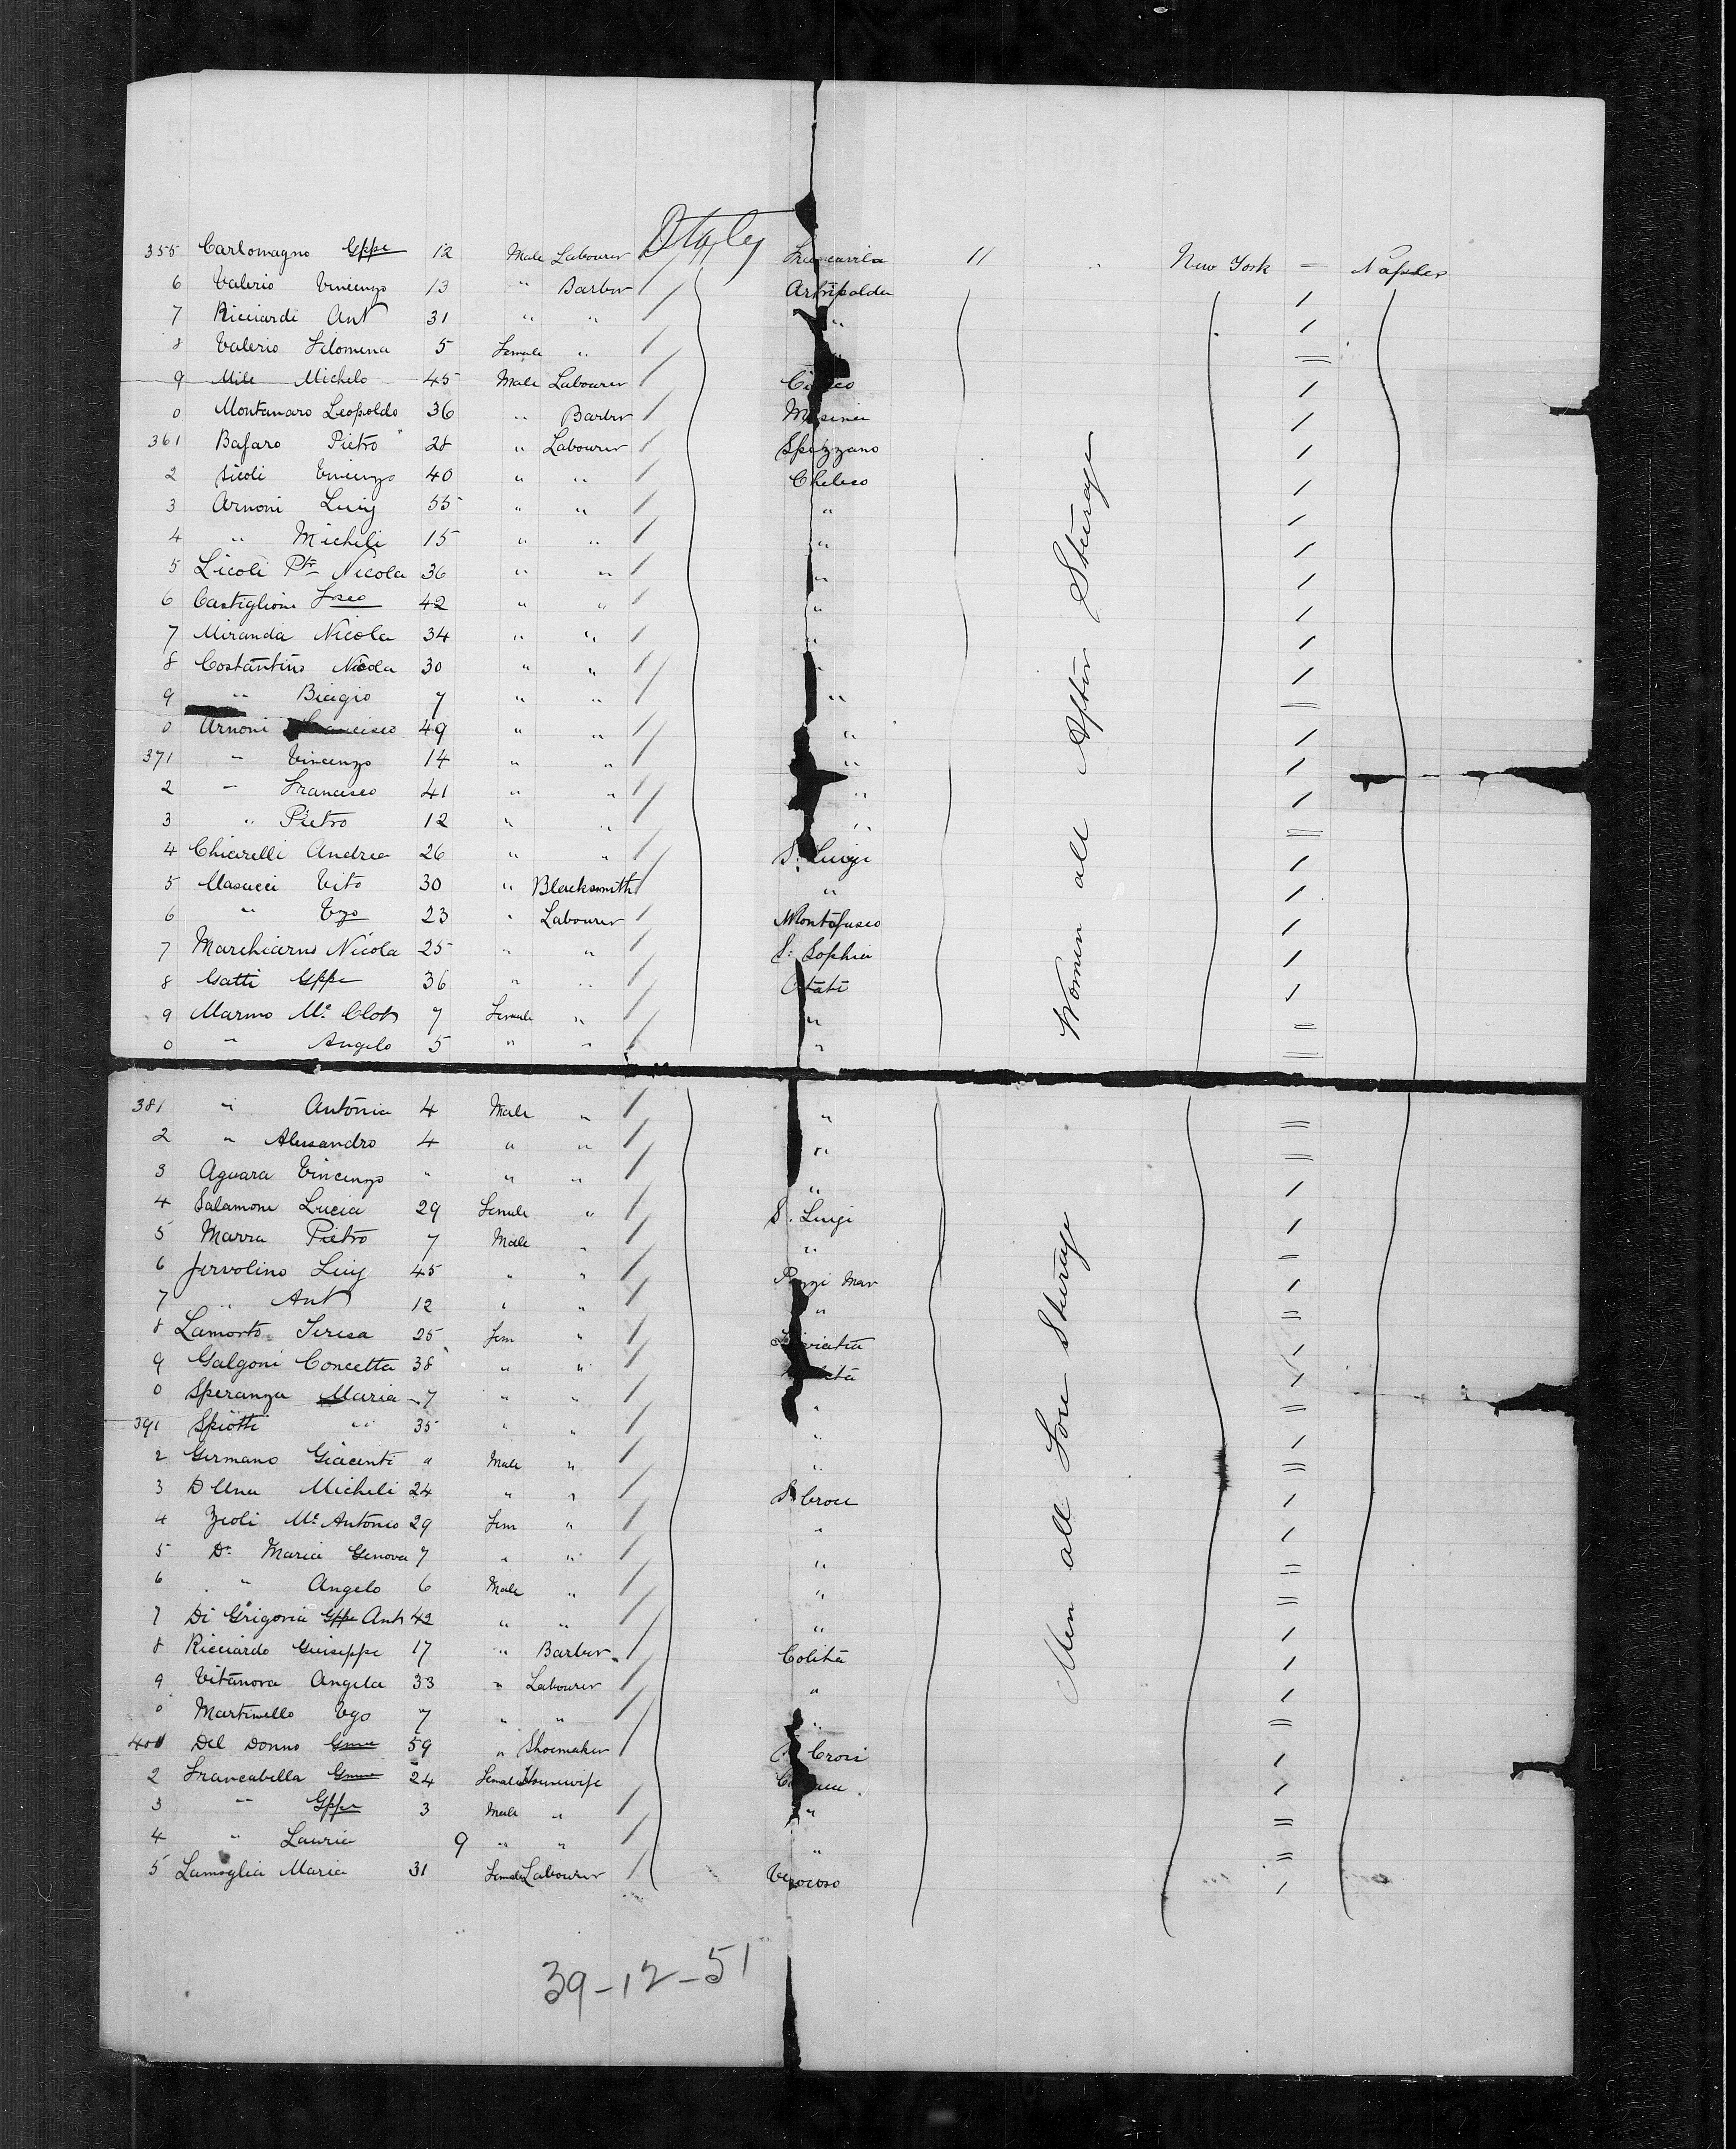 355 Carlomagno Gppe 12 Male Labourer Francavila 11 " New York = Naples
6 Valerio Vincenzo 13 " Barber Artripalda
7 Ricciardi Ant 31 " " "
8 Valerio Filomena 5 Female "
9 Mile Michele 45 Male Labourer
0 Montanaro Leopoldo 36 " Barber
361 Bafaro Pietro 28 " Labourer Spezzano
2 Sicoli Vincenzo 40 " " Cheleco
3 Arnoni Luig 55 " " "
4 " Micheli 15 " " "
5 Licoli Ptr Nicola 36 " " "
6 Castiglione Fsco 42 " " "
7 Miranda Nicola 34 " " "
8 Costantino Nicola 30 " " "
9 " Biagio 7 " " "
0 Arnoni Francisco 49 " " "
371 " Vincenzo 14 " " "
2 " Francisco 41 " " "
3 " Pietro 12 " " "
4 Chicirelli Andrea 26 " " S. Luigi
5 Masucci Vito 30 " Blacksmith "
6 " Vzo 23 " Labourer Montefusco
7 Marchiarno Nicola 25 " " S: Sophia
8 Gatti Gppe 36 " " Otati
9 Marmo Ma Clot 7 Female " "
0 " Angelo 5 " " "
Women all After Steerage
381 " Antonia 4 Male " "
2 " Alessandro 4 " " "
3 Aguara Vincenzo " " " "
4 Salamone Lucia 29 Female " S. Luigi
5 Marra Pietro 7 Male " "
6 Jervolino Luig 45 " " Mar
7 " Ant 12 " " "
8 Lamorto Teresa 25 Fem "
9 Galgoni Concetta 38 " "
0 Speranza Maria 7 " " "
391 Spiotti " 35 " " "
2 Germano Giacenti " Male " "
3 D Una Micheli 24 " " S Croce
4 Zeoli Ma Antonio 29 Fem " "
5 Do Maria Genova 7 " " "
6 " Angelo 6 Male " "
7 Di Grigoria Gppe Ant 42 " " "
8 Ricciardo Guiseppe 17 " Barber Colita
9 Vitanova Angela 33 " Labourer "
0 Martinello Vgo 7 " " "
401 Del Donno 59 " Shoemaker Croci
2 Francabella 24 Female Housewife
3 " Gppe 3 Male " "
4 " Lauria 9 " " "
5 Lamoglia Maria 31 Female Labourer
Men all Fore Steerage
39-12-51